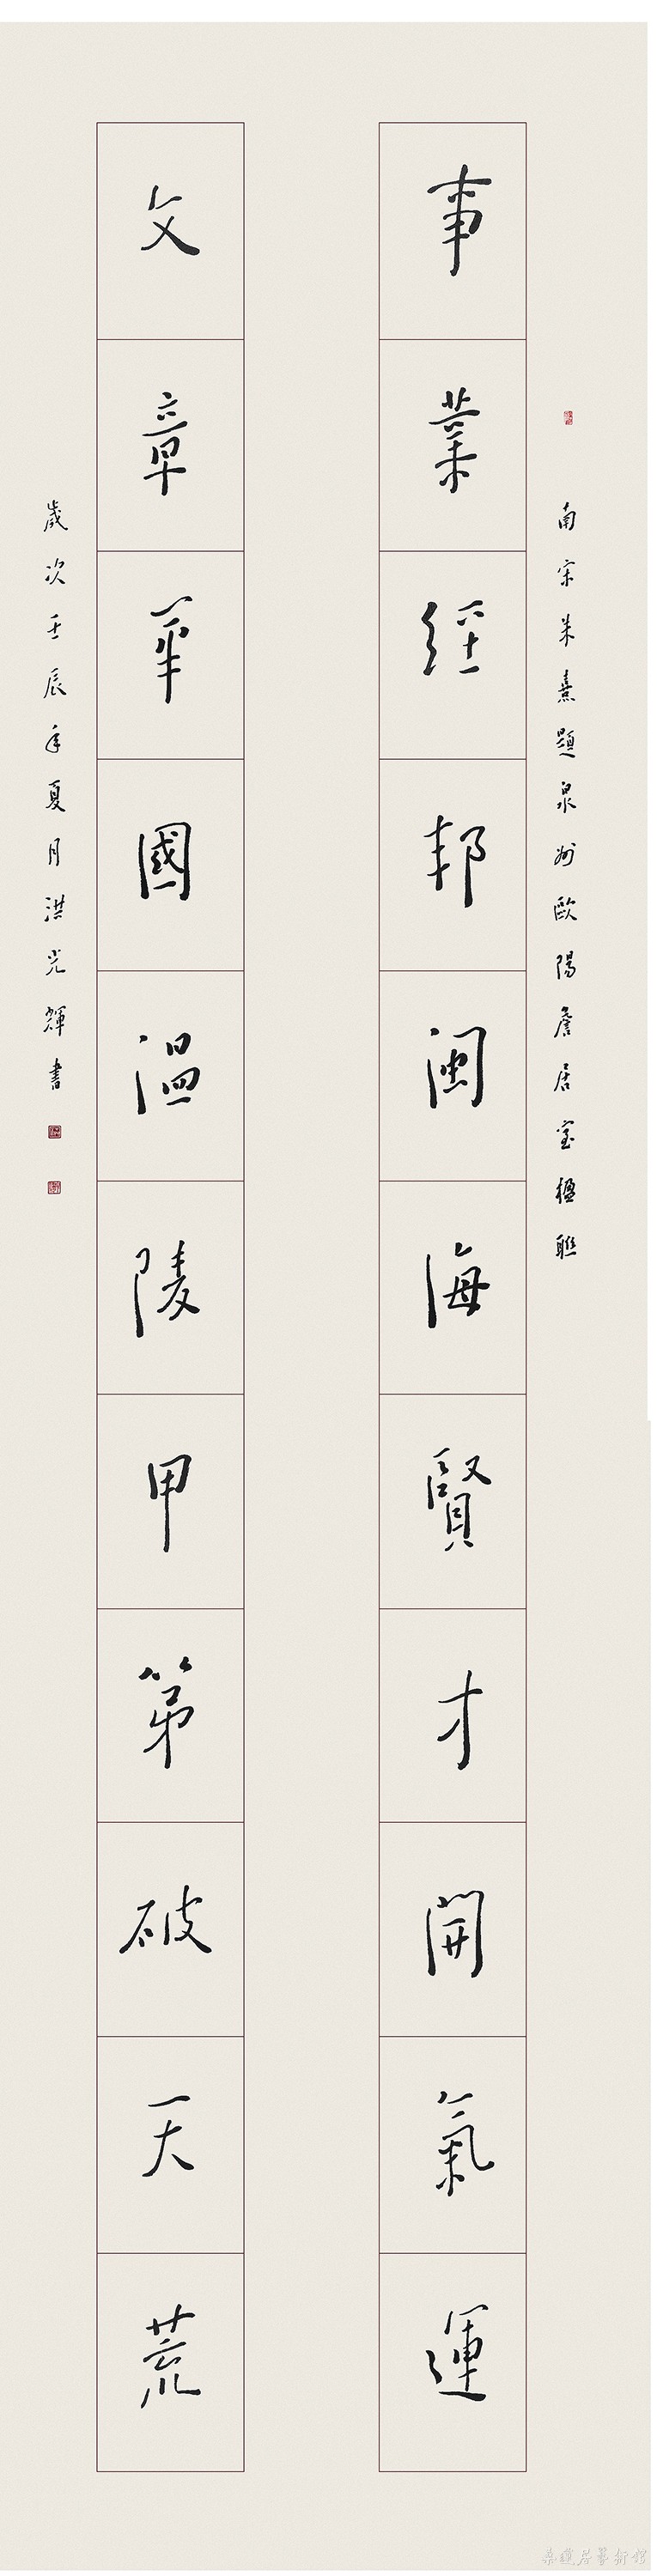 南宋朱熹題泉州歐陽詹居室楹聯
事業經邦閩海賢才開氣運
文章華國溫陵甲第破天荒
歲次壬辰年夏月洪光輝書